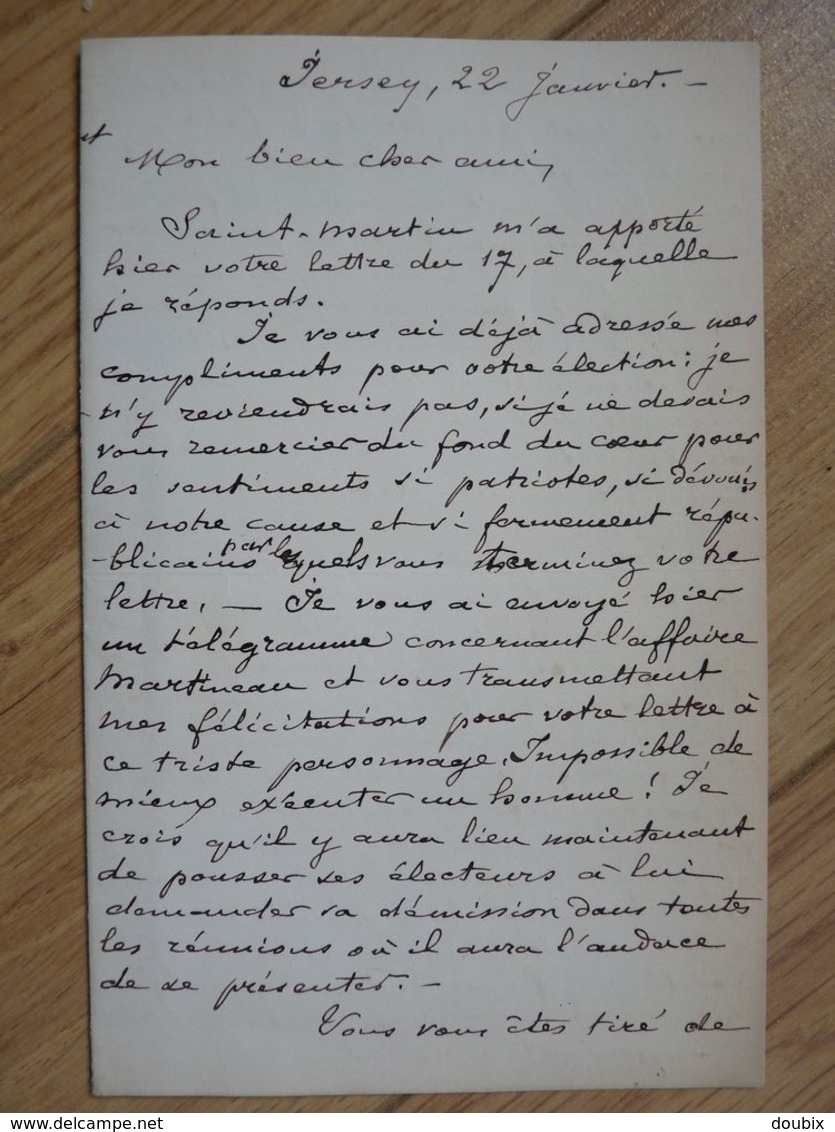 Jersey, 22 Janvier. -
Mon bien cher ami,
Saint-Martin m'a apporté
hier votre lettre du 17, à laquelle
je réponds.
Je vous ai déjà adressé mes
compliments pour votre élection: je
n'y reviendrais pas, si je ne devais
vous remercier du fond du cœur pour
les sentiments si patriotes, si dévoués
à notre cause et si fermement répu-
-blicains par lesquels vous terminez votre
lettre. — Je vous ai envoyé hier
un télégramme concernant l'affaire
Martineau et vous transmettant
mes félicitations pour votre lettre à
ce triste personnage. Impossible de
mieux exécuter un homme! Je
crois qu'il y aura lieu maintenant
de pousser ses électeurs à lui
demander sa démission dans toutes
les réunions où il aura l'audace
de se présenter. -
Vous vous êtes tiré de
www.delcampe.net
doubix